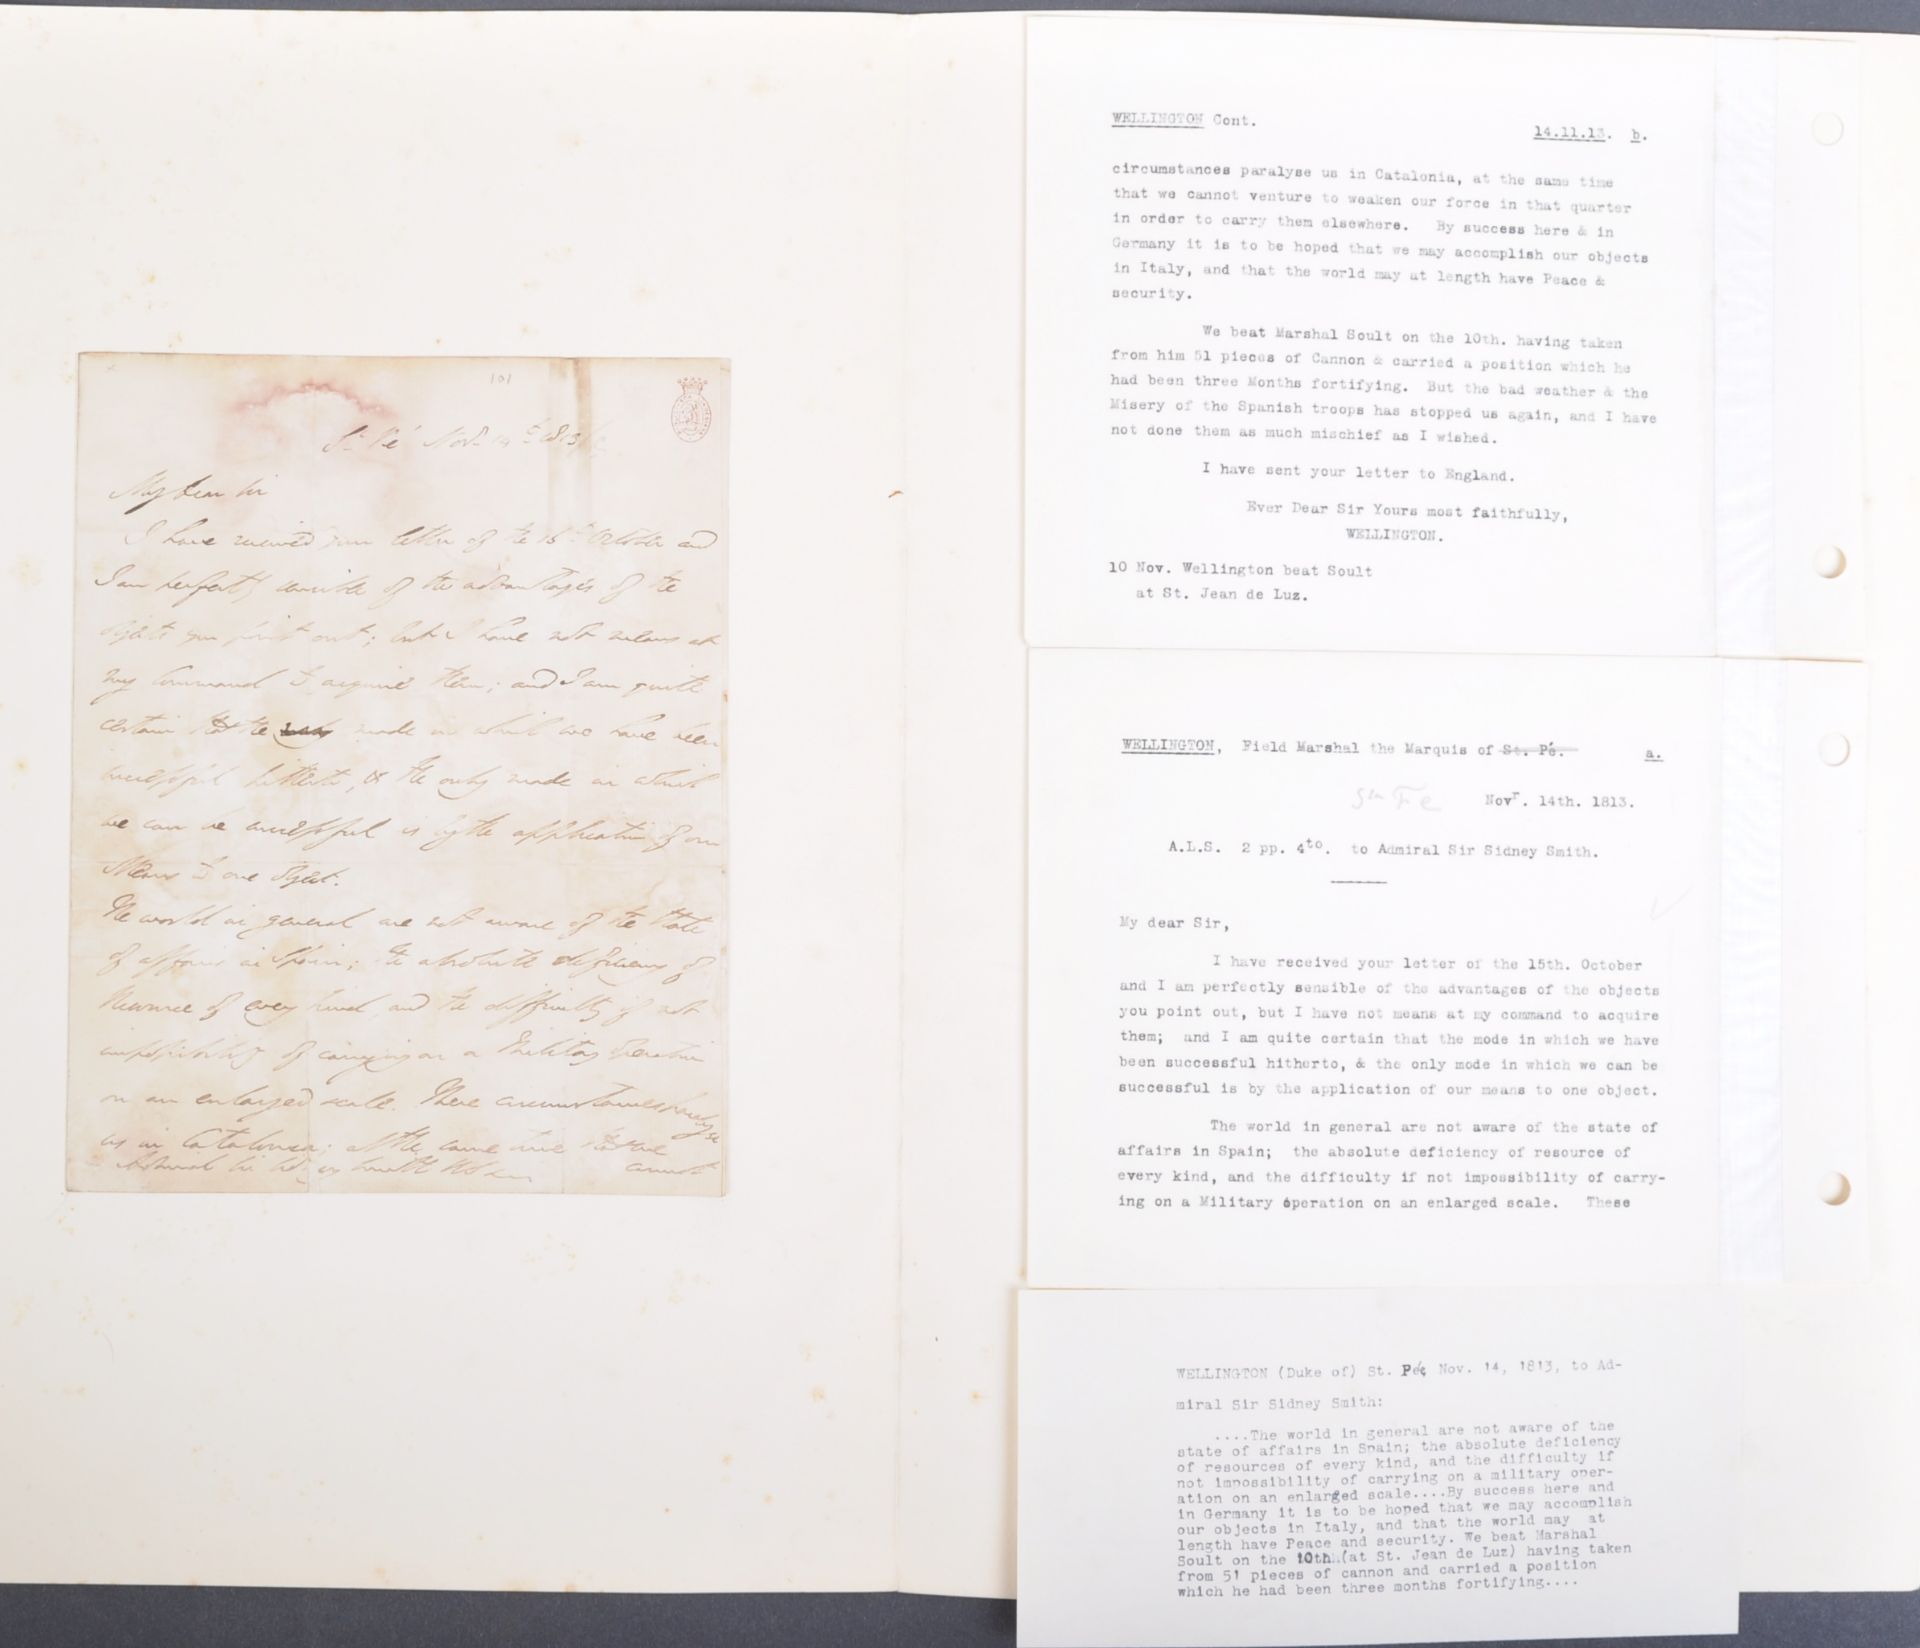 101
St. Pé Nov. 14th 1813
My dear Sir
I have received your letter of the 16th October and
I am perfectly sensible of the advantages of the
objects you point out; but I have not means at
my Command to acquire them; and I am quite
certain that the mode in which we have been
successful hitherto, & the only mode in which
we can be successful is by the application of our
Means to one object.
The world in general are not aware of the State
of affairs in Spain; the absolute deficiency of
resource of every kind, and the difficulty if not
impossibility of carrying on a Military Operation
on an enlarged scale. These circumstances paralyse
us in Catalonia; at the same time that we
Admiral Sir Sidney Smith cannot
WELLINGTON Cont.
14.11.13. b.
circumstances paralyse us in Catalonia, at the same time
that we cannot venture to weaken our force in that quarter
in order to carry them elsewhere. By success here & in
Germany it is to be hoped that we may accomplish our objects
in Italy, and that the world may at length have Peace &
security.
We beat Marshal Soult on the 10th. having taken
from him 51 pieces of Cannon & carried a position which he
had been three Months fortifying. But the bad weather & the
Misery of the Spanish troops has stopped us again, and I have
not done them as much mischief as I wished.
I have sent your letter to England.
Ever Dear Sir Yours most faithfully,
WELLINGTON.
10 Nov. Wellington beat Soult
at St. Jean de Luz.
WELLINGTON, Field Marshal the Marquis of St. Pé. a.
Novr. 14th. 1813.
A.L.S. 2 pp. 4to. to Admiral Sir Sidney Smith.
My dear Sir,
I have received your letter of the 15th. October
and I am perfectly sensible of the advantages of the objects
you point out, but I have not means at my command to acquire
them; and I am quite certain that the mode in which we have
been successful hitherto, & the only mode in which we can be
successful is by the application of our means to one object.
The world in general are not aware of the state of
affairs in Spain; the absolute deficiency of resource of
every kind, and the difficulty if not impossibility of carry-
ing on a Military operation on an enlarged scale. These
WELLINGTON (Duke of) St. Pé, Nov. 14, 1813, to Ad-
miral Sir Sidney Smith:
....The world in general are not aware of the
state of affairs in Spain; the absolute deficiency
of resources of every kind, and the difficulty if
not impossibility of carrying on a military oper-
ation on an enlarged scale....By success here and
in Germany it is to be hoped that we may accomplish
our objects in Italy, and that the world may at
length have Peace and security. We beat Marshal
Soult on the 10th.(at St. Jean de Luz) having taken
from 51 pieces of cannon and carried a position
which he had been three months fortifying....